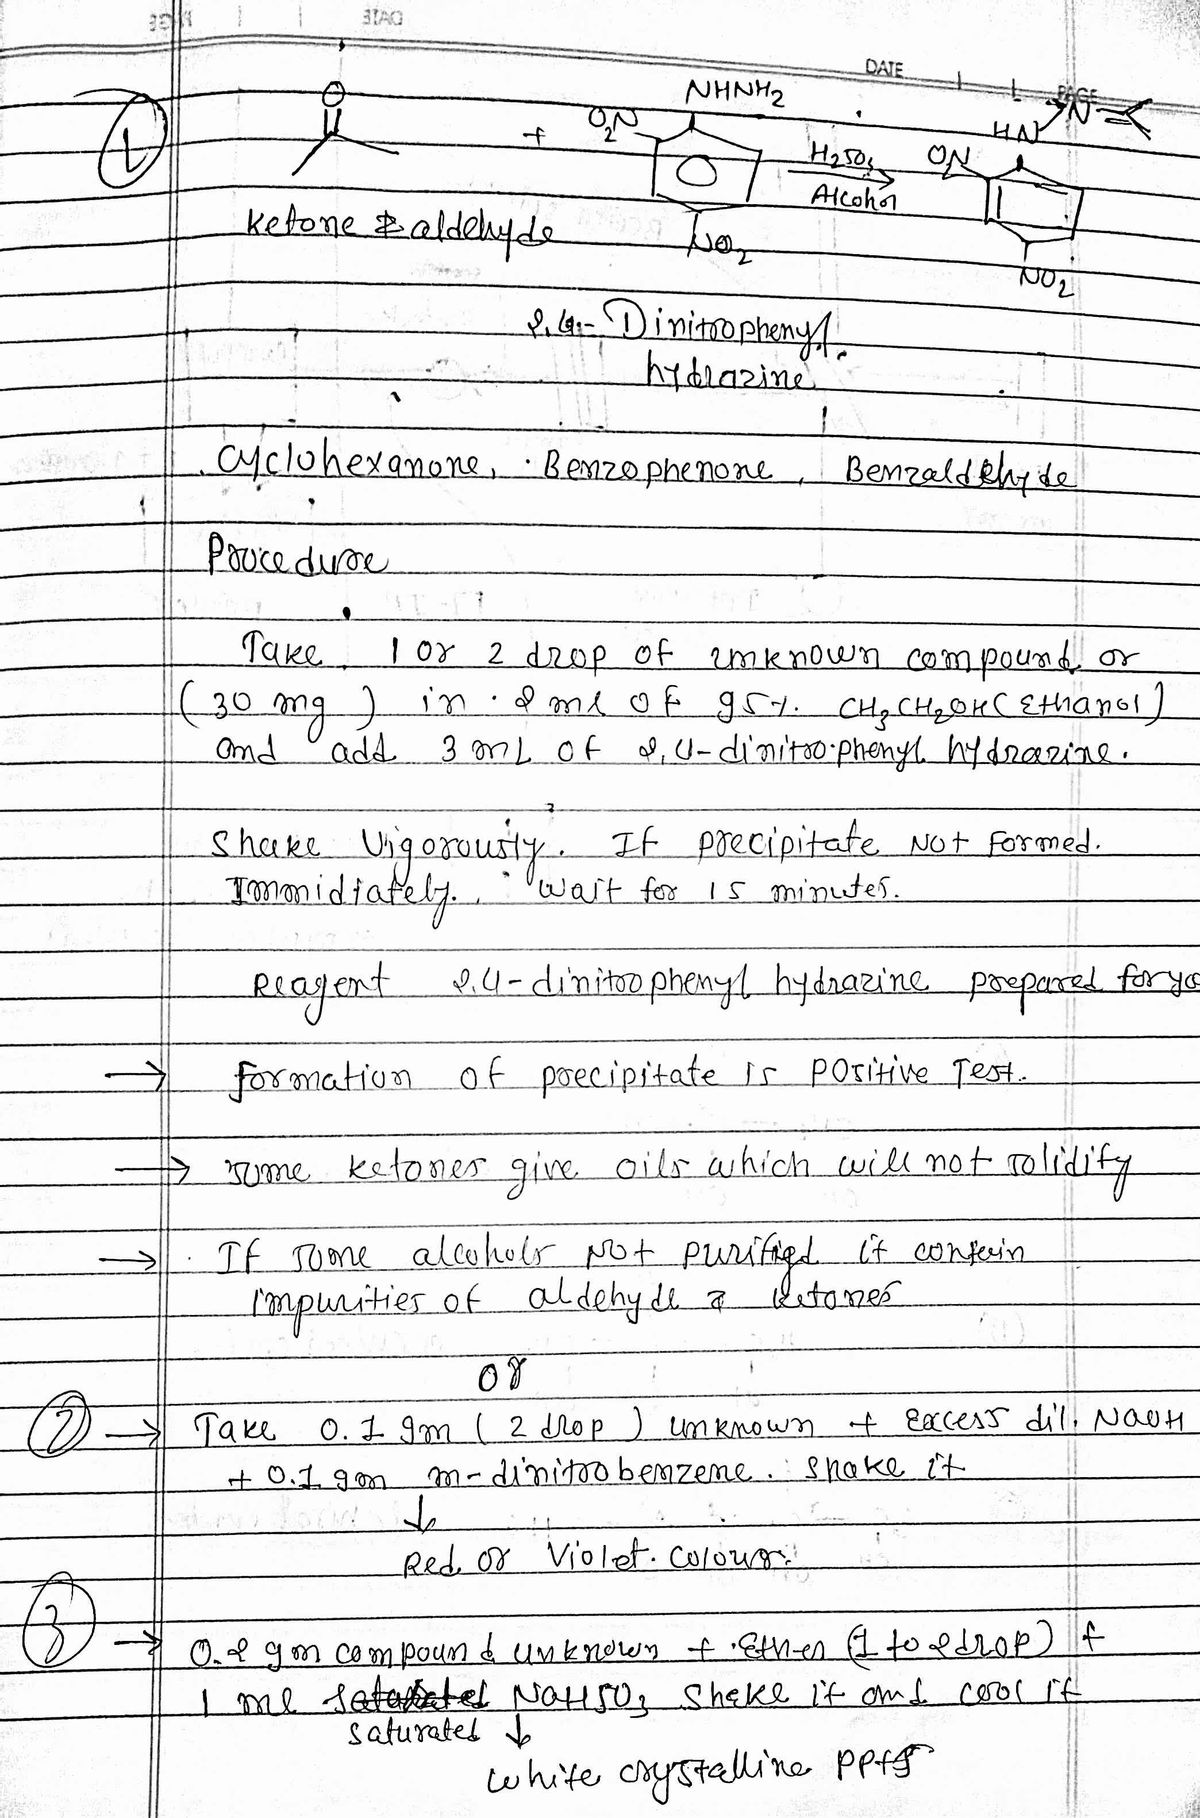 DATE
PAGE
1.
O
+
O2N
NHNH2
NO2
H2SO3
Alcohol
ON
HN
N
NO2
Ketone & aldehyde
2,4- Dinitrophenyl
hydrazine
Cyclohexanone, Benzophenone, Benzaldehyde
Procedure
Take 1 or 2 drop of unknown compound or
(30 mg) in 2 ml of 95%. CH3CH2OH (Ethanol)
and add 3 mL of 2,4-dinitrophenyl hydrazine.
Shake Vigorously. If precipitate Not Formed.
Immidiately. Wait for 15 minutes.
Reagent 2,4-dinitrophenyl hydrazine prepared for yo
→ formation of precipitate is Positive Test.
→ some ketones give oils which will not solidify
→ If some alcohols Not purified it contain
impurities of aldehyde & ketones
OR
2 → Take 0.1 gm (2 drop) unknown + Excess dil. NaOH
+ 0.1 gm m-dinitrobenzene. Shake it
↓
Red or Violet. Colour.
3 → 0.2 gm compound unknown + Ether (1 to 2 drop) +
1 ml NaHSO3 Shake it and cool it
saturated ↓
White crystalline ppts